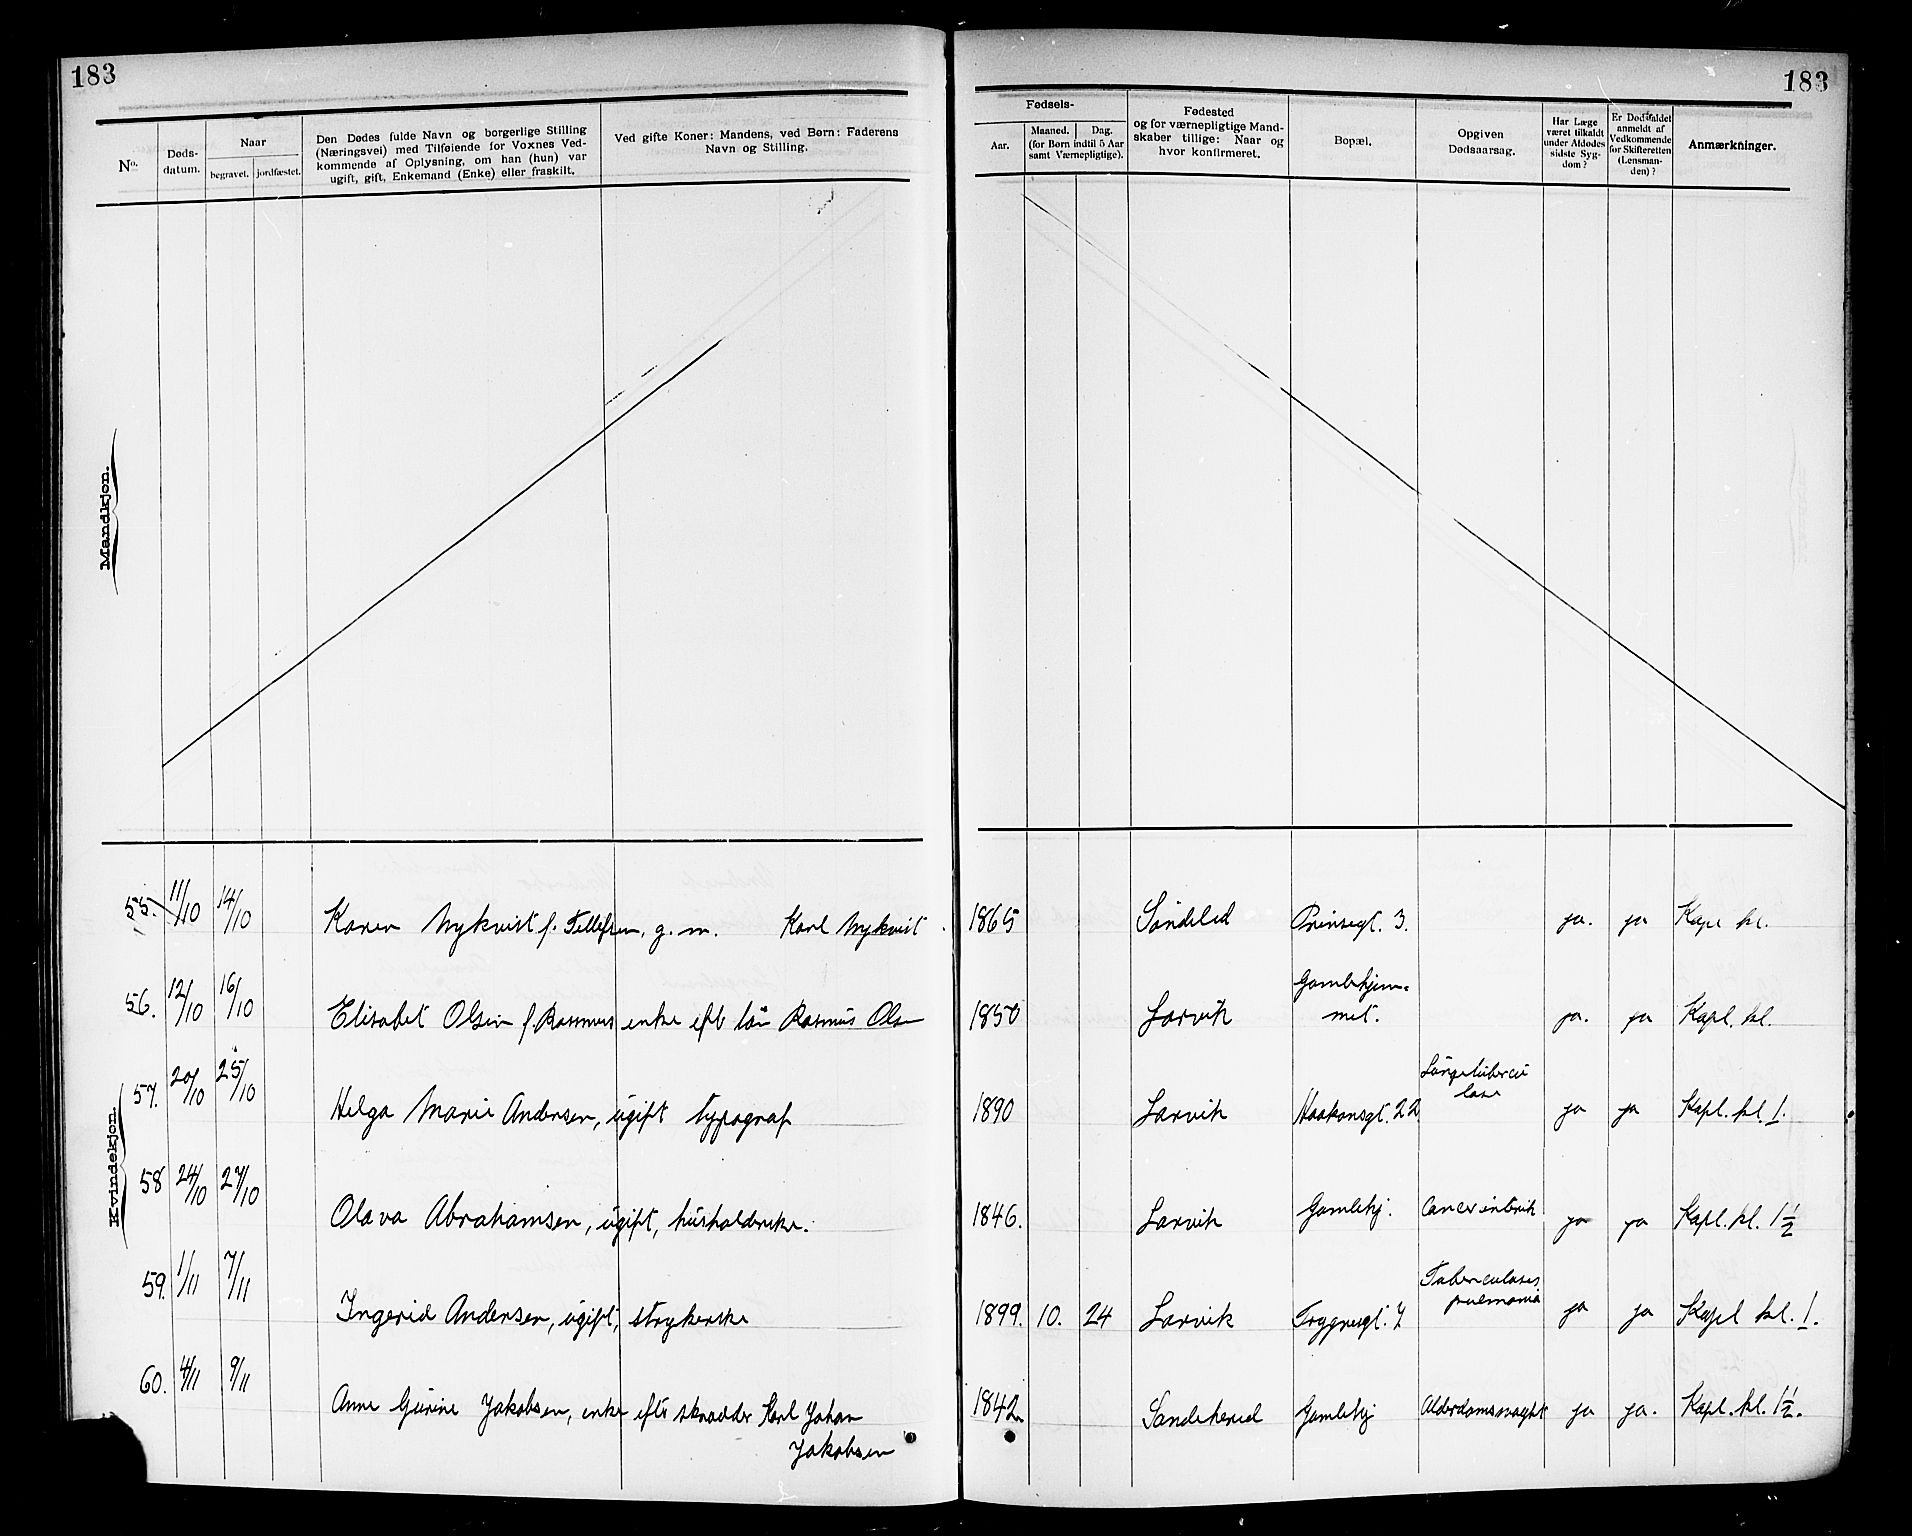 183
183
No.
Døds-
datum.
Naar
begravet.
jordfæstet.
Den Dødes fulde Navn og borgerlige Stilling
(Næringsvei) med Tilføiende for Voxnes Ved-
kommende af Oplysning, om han (hun) var
ugift, gift, Enkemand (Enke) eller fraskilt.
Ved gifte Koner: Mandens, ved Børn: Faderens
Navn og Stilling.
Fødsels-
Aar.
Maaned.
Dag.
(for Børn indtil 5 Aar
samt Værnepligtige).
Fødested
og for værnepligtige Mand-
skaber tillige: Naar og
hvor konfirmeret.
Bopæl.
Opgiven
Dødsaarsag.
Har Læge
været tilkaldt
under Afdødes
sidste Syg-
dom?
Er Dødsfaldet
anmeldt af
Vedkommende
for Skifteretten
(Lensman-
den)?
Anmærkninger.
Mandkjøn.
Kvindekjøn.
55. 11/10 14/10 Karen Nykvist f. Tellefsen, g. m. Karl Nykvist. 1865 Söndeled Prinsegt. 3. ja. ja Kapl kl.
56. 12/10 16/10 Elisabet Olsen f. Rasmus enke eft. Rasmus Olsen 1850 Larvik Gamlehjem-
met. ja. ja Kapl. kl.
57. 20/10 25/10 Helga Marie Andersen, ugift typograf 1890 Larvik Haakonsgt. 22 Lungetubercu
lose ja ja Kapl. kl. 1.
58 24/10 27/10 Olava Abrahamsen, ugift, husholderske. 1846. Larvik Gamlehj. Cancer ja ja Kapl. kl. 1 1/2
59. 1/11 7/11 Ingerid Andersen, ugift, strykerske 1899. 10. 24 Larvik Trygvesgt. 7 Tuberculosis
pulmonia ja ja Kapl kl. 1.
60. 4/11 9/11 Anne Gurine Jakobsen, enke efter skradder Karl Johan
Jakobsen 1842. Sandeherred Gamlehj Alderdomsvaghet ja ja. Kapl. kl. 1 1/2.